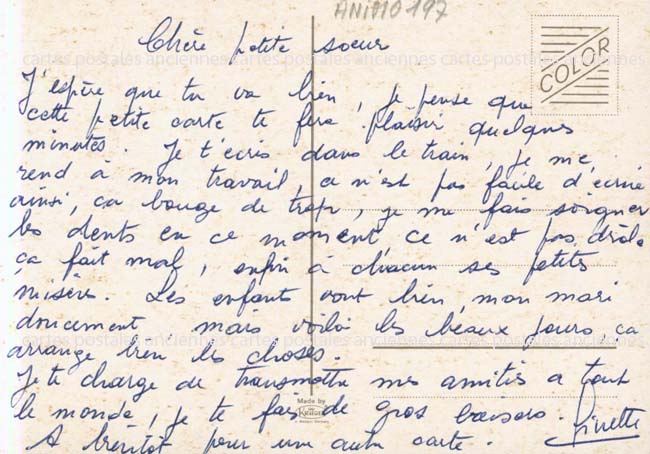 ANIMO 197
COLOR
Chère petite soeur
cartes postales anciennes cartes postales anciennes cartes postales anciennes cartes postales
J'espère que tu va bien, je pense que
cette petite carte te fera plaisir quelques
minutes. Je t'écris dans le train, je me
rend à mon travail, ce n'est pas facile d'écrire
ainsi, ça bouge de trop, je me fais soigner
les dents en ce moment, ce n'est pas drôle
ça fait mal, enfin à chacun ses petits
misère. Les enfants vont bien, mon mari
doucement, mais voilà les beaux jours, ça
cartes postales anciennes cartes postales anciennes cartes postales anciennes cartes postales
arrange bien les choses.
Je te charge de transmettre mes amitiés a tout
le monde, je te fais de gros baisers.
A bientôt pour une autre carte. Ginette
Made by